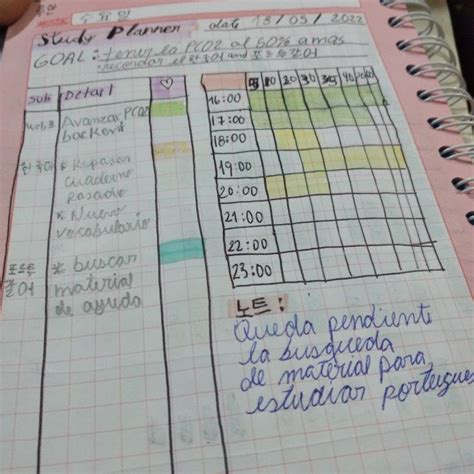 수요일
Study Planner date 18/05/2022
GOAL: tener la PC02 al 60% a mas
recordar el 한국어 and 포르투갈어
Sub Detail ♡
10 20 30 40
web Avanzar PC02
backend
한국어 * Repasar
cuaderno
pasado
* Nuevo
vocabulario
포르투갈어 * buscar
material
de ayuda
16:00
17:00
18:00
19:00
20:00
21:00
22:00
23:00
노트:
Queda pendiente
la busqueda
de material para
estudiar portugues